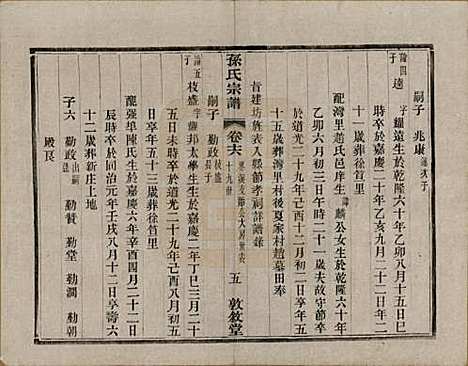 嗣子 兆康
字鍾遠生於乾隆六十年乙卯八月十五日
子時卒於嘉慶二十年乙亥九月二十二日享年二
十一歲葬徐笪里
配灣里趙氏邑庠生諱麟公女生於乾隆六十年
乙卯六月初三日
於道光二十九年己酉十二月初二日
十五歲葬灣里村後夏家村趙墓田奉
旨建坊旌表入縣節孝祠詳譜錄
孫氏宗譜
卷六
十九世
五
敦敘堂
嗣子 勤政
枝盛 字邦太學生生於嘉慶二年丁巳三月二十
五日未時卒於道光二十九年己酉八月初五
日享年五十三歲葬徐笪里
配張墅陳氏生於嘉慶六年辛酉四月二十二日
辰時卒於同治元年壬戌八月十二日享壽六
十二歲葬新庄上地
子六 勤政 勤贊 勤堂 勤潤 勤朝
殿良